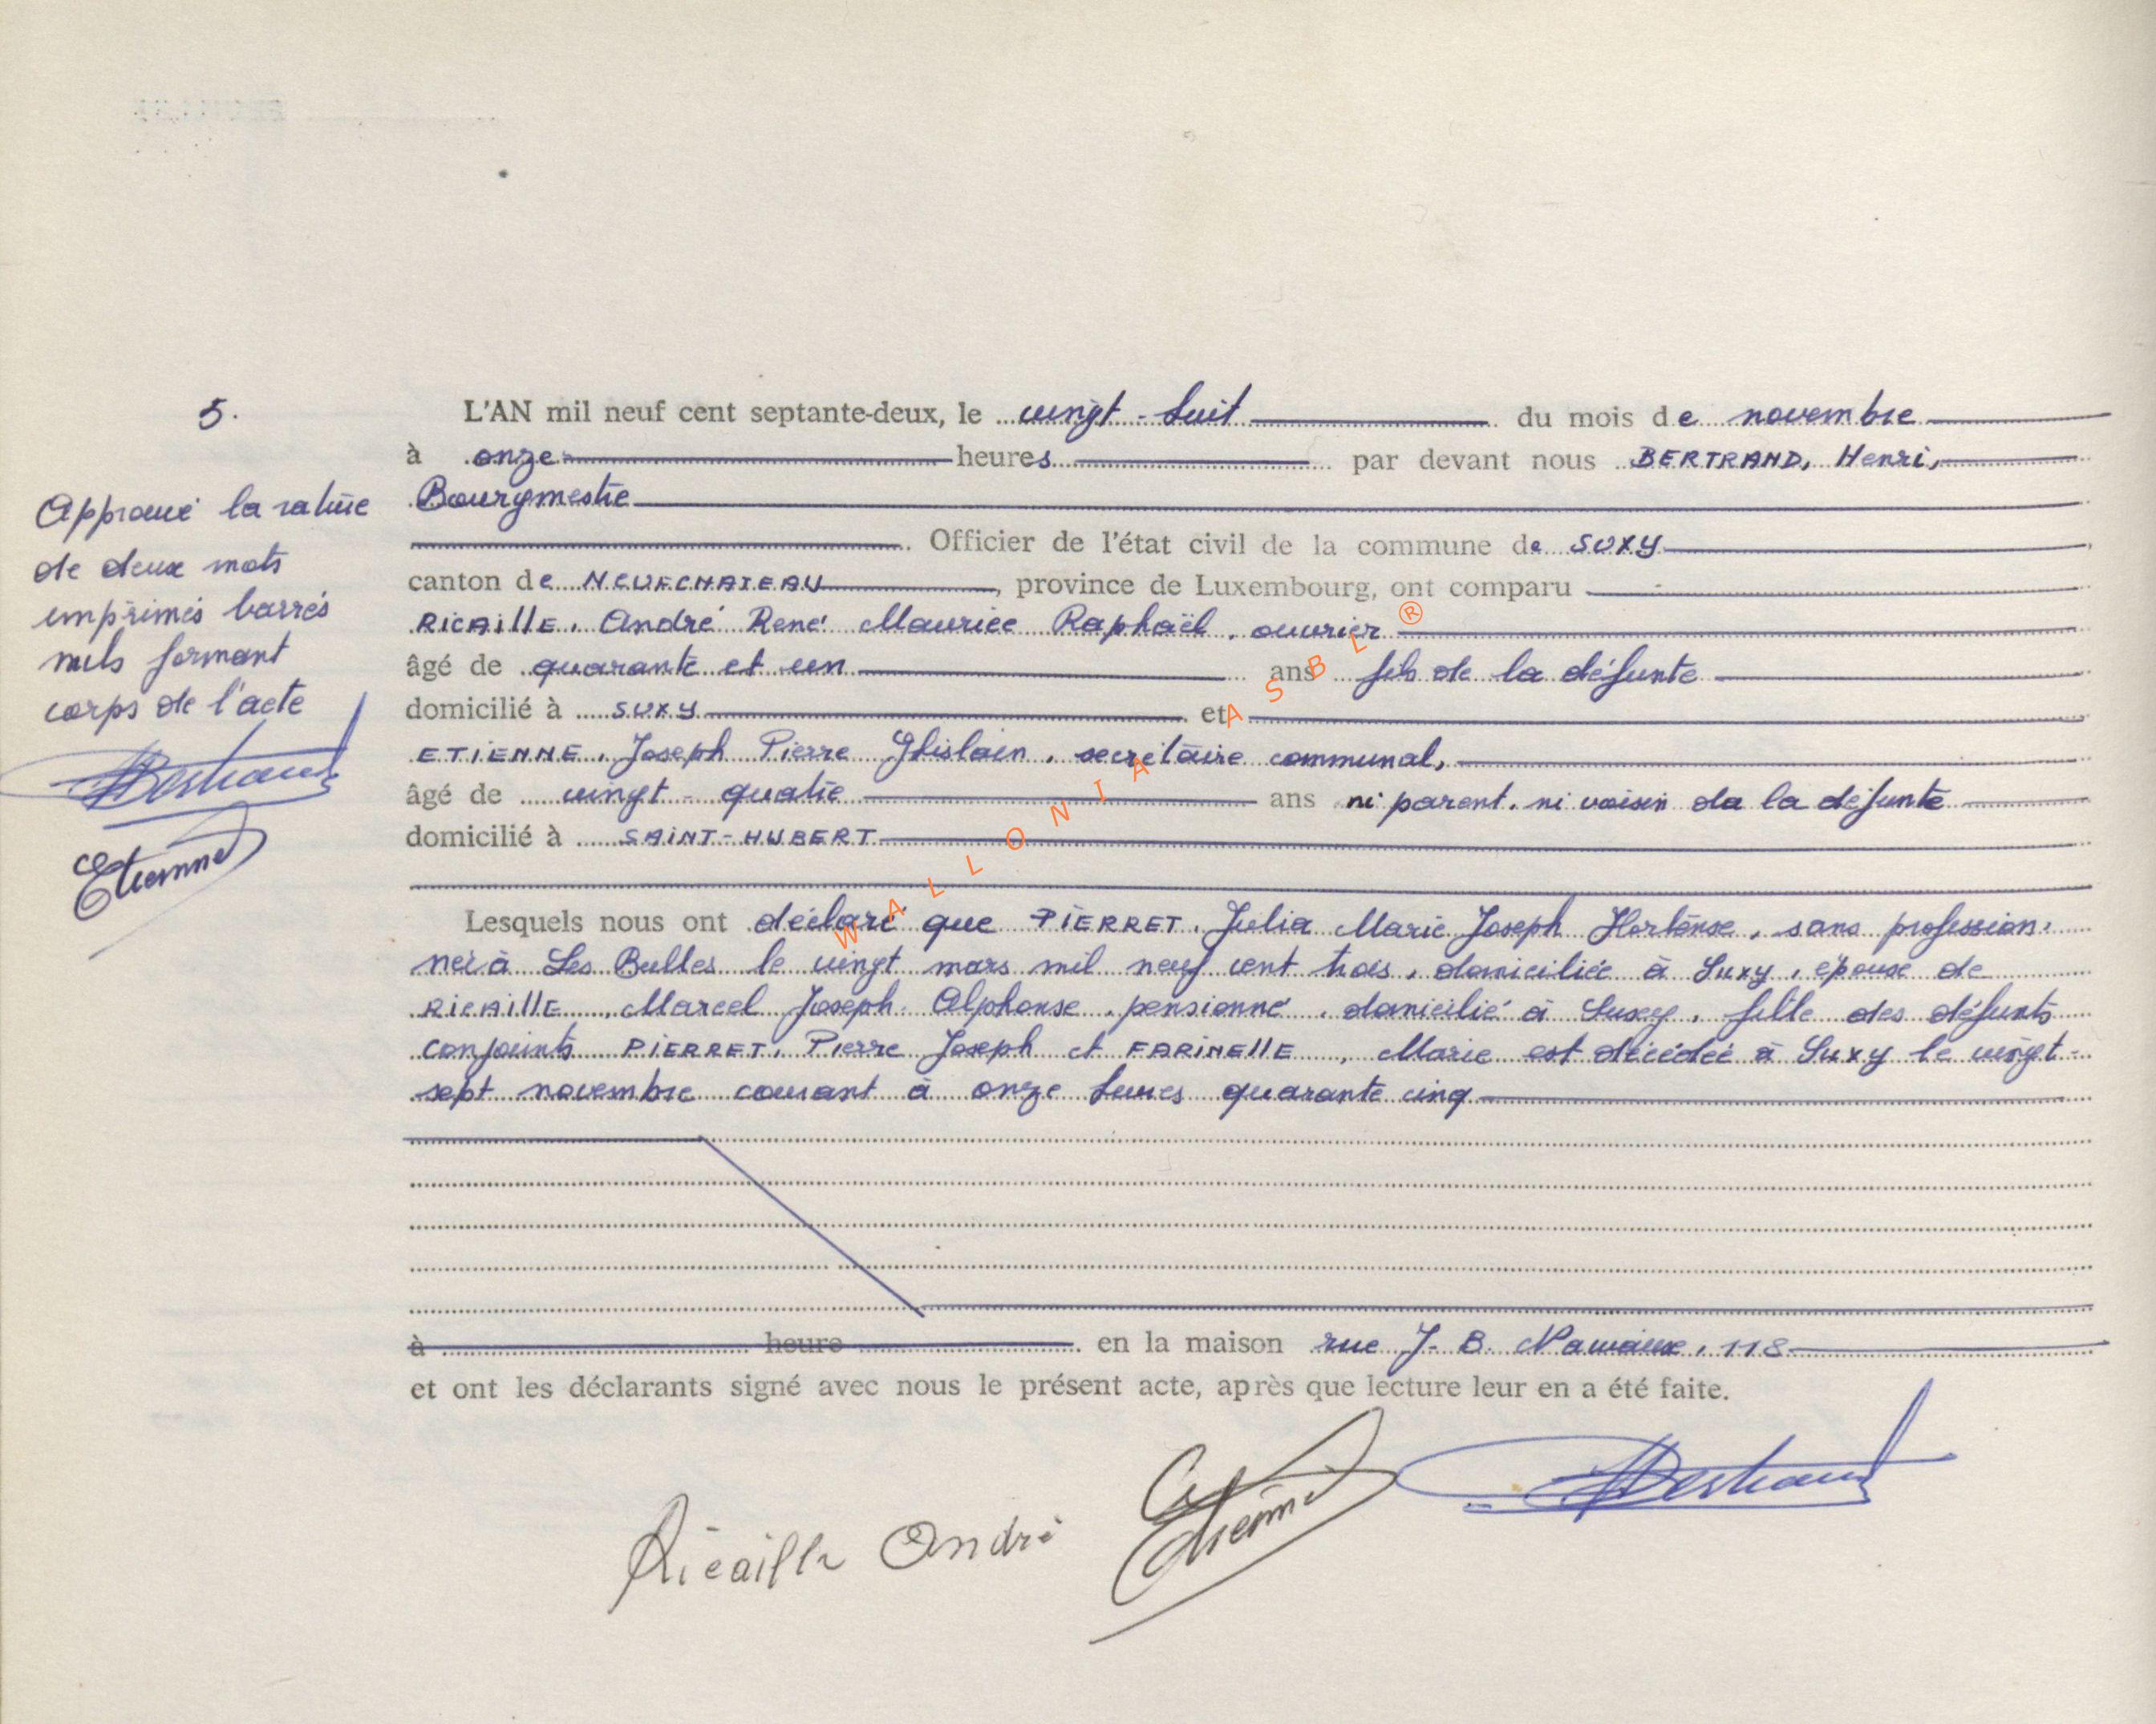 5.
L'AN mil neuf cent septante-deux, le vingt-huit du mois de novembre
à onze heures par devant nous BERTRAND, Henri,
Bourgmestre
Officier de l'état civil de la commune de SUXY
canton de NEUFCHATEAU, province de Luxembourg, ont comparu
RICAILLE, André René Maurice Raphaël, ouvrier
âgé de quarante et un ans fils de la défunte
domicilié à SUXY et
ETIENNE, Joseph Pierre Ghislain, secrétaire communal,
âgé de vingt-quatre ans ni parent, ni voisin de la défunte
domicilié à SAINT-HUBERT
Lesquels nous ont déclaré que PIERRET, Julia Marie Joseph Hortense, sans profession,
née à Les Bulles le vingt mars mil neuf cent trois, domiciliée à Suxy, épouse de
RICAILLE, Marcel Joseph Alphonse, pensionné, domicilié à Suxy, fille des défunts
conjoints PIERRET, Pierre Joseph et FARINELLE, Marie est décédée à Suxy le vingt-
sept novembre courant à onze heures quarante cinq
à heure en la maison rue J. B. 118
et ont les déclarants signé avec nous le présent acte, après que lecture leur en a été faite.
Approuvé la rature
de deux mots
imprimés barrés
nuls formant
corps de l'acte
Bertrand
Etienne
Ricaille André
Etienne
Bertrand
WALLONIA ASBL ®